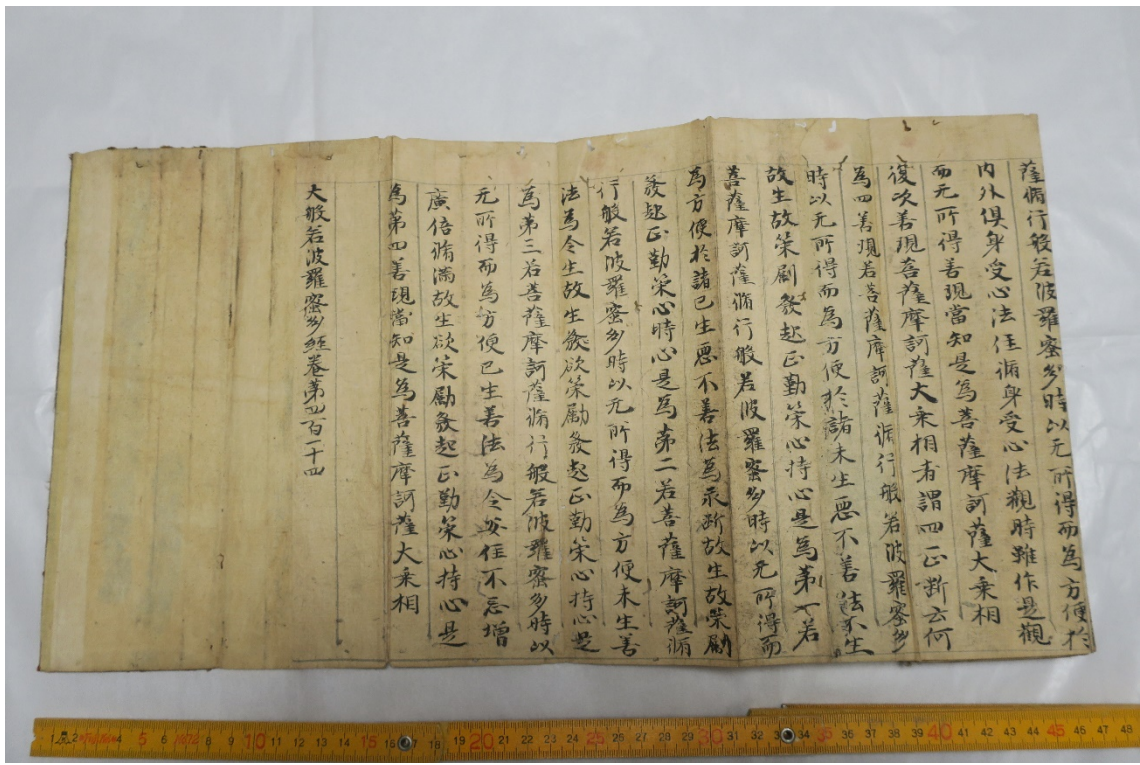 薩脩行般若波羅蜜多時以无所得而為方便於
内外俱身受心法住脩身受心法觀時雖作是觀
而无所得善現當知是為菩薩摩訶薩大乘相
復次善現菩薩摩訶薩大乘相者謂四正斷云何
為四善現若菩薩摩訶薩脩行般若波羅蜜多
時以无所得而為方便於諸未生惡不善法不生
故生故策勵發起正勤策心持心是為第一若
菩薩摩訶薩脩行般若波羅蜜多時以无所得而
為方便於諸已生惡不善法為永斷故生故策勵
發起正勤策心時心是為第二若菩薩摩訶薩脩
行般若波羅蜜多時以无所得而為方便未生善
法為令生故生發欲策勵發起正勤策心持心是
為第三若菩薩摩訶薩脩行般若波羅蜜多時以
无所得而為方便已生善法為令安住不忘增
廣倍脩滿故生欲策勵發起正勤策心持心是
為第四善現當知是為菩薩摩訶薩大乘相
大般若波羅蜜多經卷第四百一十四
4 5 6 8 9 10 11 12 13 14 15 16 17 18 19 20 21 22 23 24 25 26 27 28 29 30 31 32 33 34 35 36 37 38 39 40 41 42 43 44 45 46 47 48